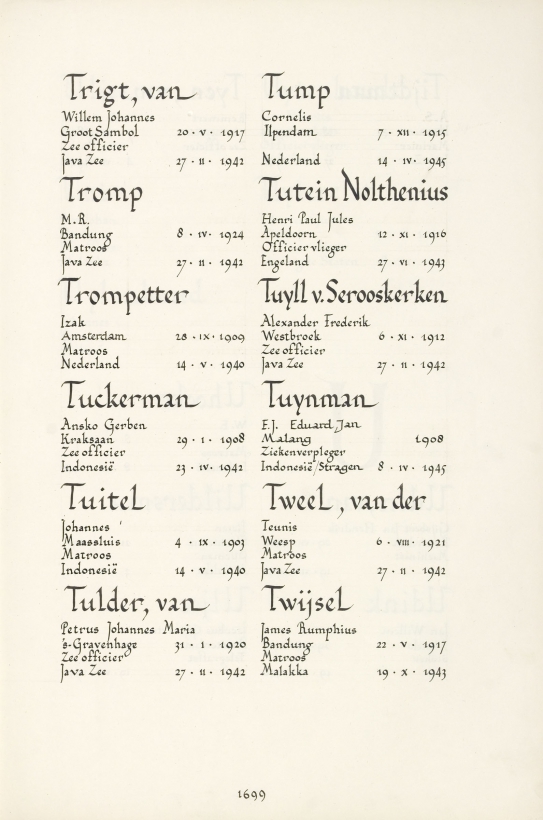 Trigt, van
Willem Johannes
Groot Sambol 20 · V · 1917
Zee officier
Java Zee 27 · II · 1942
Tromp
M.R.
Bandung 8 · IV · 1924
Matroos
Java Zee 27 · II · 1942
Trompetter
Izak
Amsterdam 28 · IX · 1909
Matroos
Nederland 14 · V · 1940
Tuckerman
Ansko Gerben
Kraksaan 29 · I · 1908
Zee officier
Indonesië 23 · IV · 1942
Tuitel
Johannes
Maassluis 4 · IX · 1903
Matroos
Indonesië 14 · V · 1940
Tulder, van
Petrus Johannes Maria
's-Gravenhage 31 · I · 1920
Zee officier
Java Zee 27 · II · 1942
Tump
Cornelis
Ilpendam 7 · XII · 1915
Nederland 14 · IV · 1945
Tutein Nolthenius
Henri Paul Jules
Apeldoorn 12 · XI · 1916
Officier vlieger
Engeland 27 · VI · 1943
Tuyll v. Serooskerken
Alexander Frederik
Westbroek 6 · XI · 1912
Zee officier
Java Zee 27 · II · 1942
Tuynman
F.J. Eduard Jan
Malang 1908
Ziekenverpleger
Indonesië/Stragen 8 · IV · 1945
Tweel, van der
Teunis
Weesp 6 · VIII · 1921
Matroos
Java Zee 27 · II · 1942
Twijsel
James Rumphius
Bandung 22 · V · 1917
Matroos
Malakka 19 · X · 1943
1699